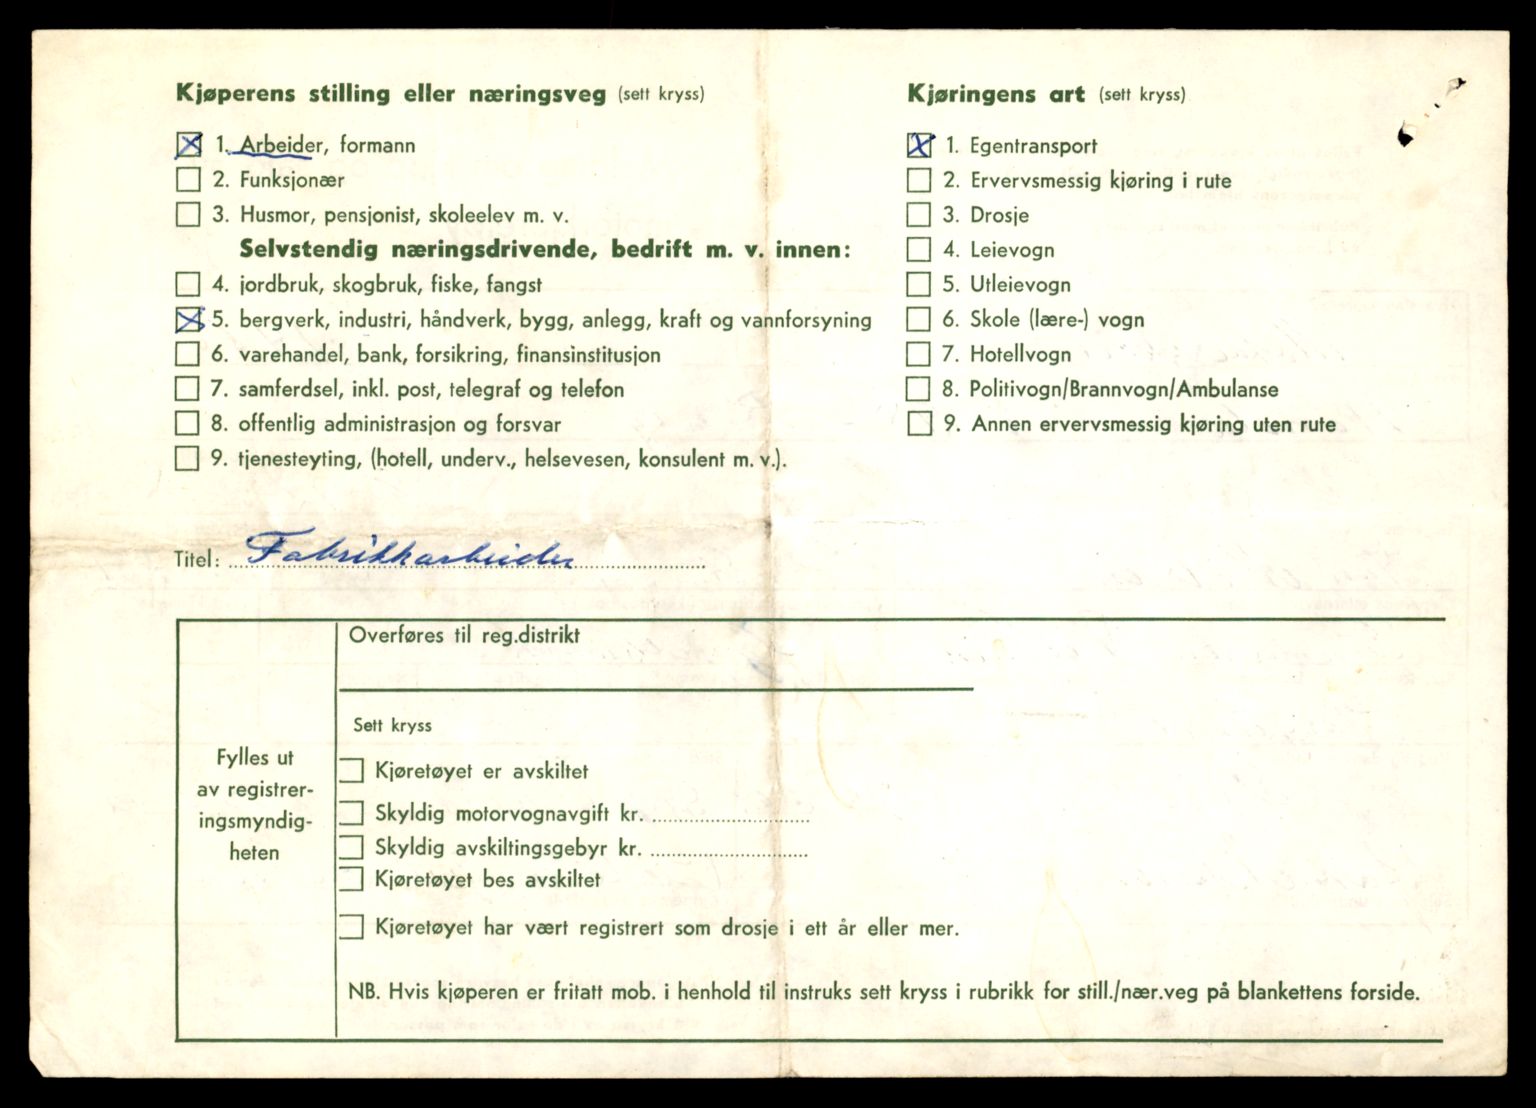 Kjøperens stilling eller næringsveg (sett kryss)
1. Arbeider, formann
2. Funksjonær
3. Husmor, pensjonist, skoleelev m. v.
Selvstendig næringsdrivende, bedrift m. v. innen:
4. jordbruk, skogbruk, fiske, fangst
5. bergverk, industri, håndverk, bygg, anlegg, kraft og vannforsyning
6. varehandel, bank, forsikring, finansinstitusjon
7. samferdsel, inkl. post, telegraf og telefon
8. offentlig administrasjon og forsvar
9. tjenesteyting, (hotell, underv., helsevesen, konsulent m. v.).
Kjøringens art (sett kryss)
1. Egentransport
2. Ervervsmessig kjøring i rute
3. Drosje
4. Leievogn
5. Utleievogn
6. Skole (lære-) vogn
7. Hotellvogn
8. Politivogn/Brannvogn/Ambulanse
9. Annen ervervsmessig kjøring uten rute
Titel: Fabrikkarbeider
Fylles ut
av registrer-
ingsmyndig-
heten
Overføres til reg.distrikt
Sett kryss
Kjøretøyet er avskiltet
Skyldig motorvognavgift kr.
Skyldig avskiltingsgebyr kr.
Kjøretøyet bes avskiltet
Kjøretøyet har vært registrert som drosje i ett år eller mer.
NB. Hvis kjøperen er fritatt mob. i henhold til instruks sett kryss i rubrikk for still./nær.veg på blankettens forside.